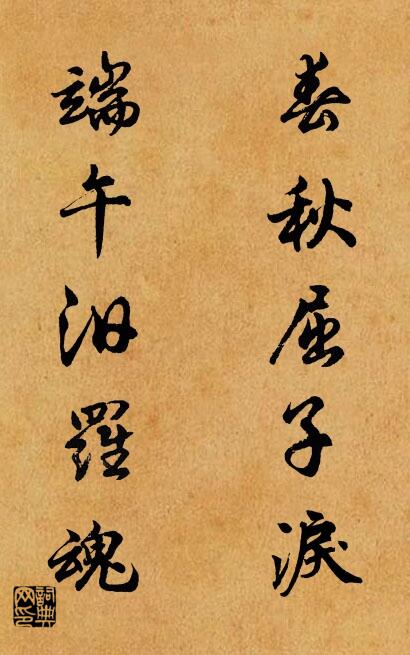 春秋屈子淚
端午汨羅魂
詞典网印